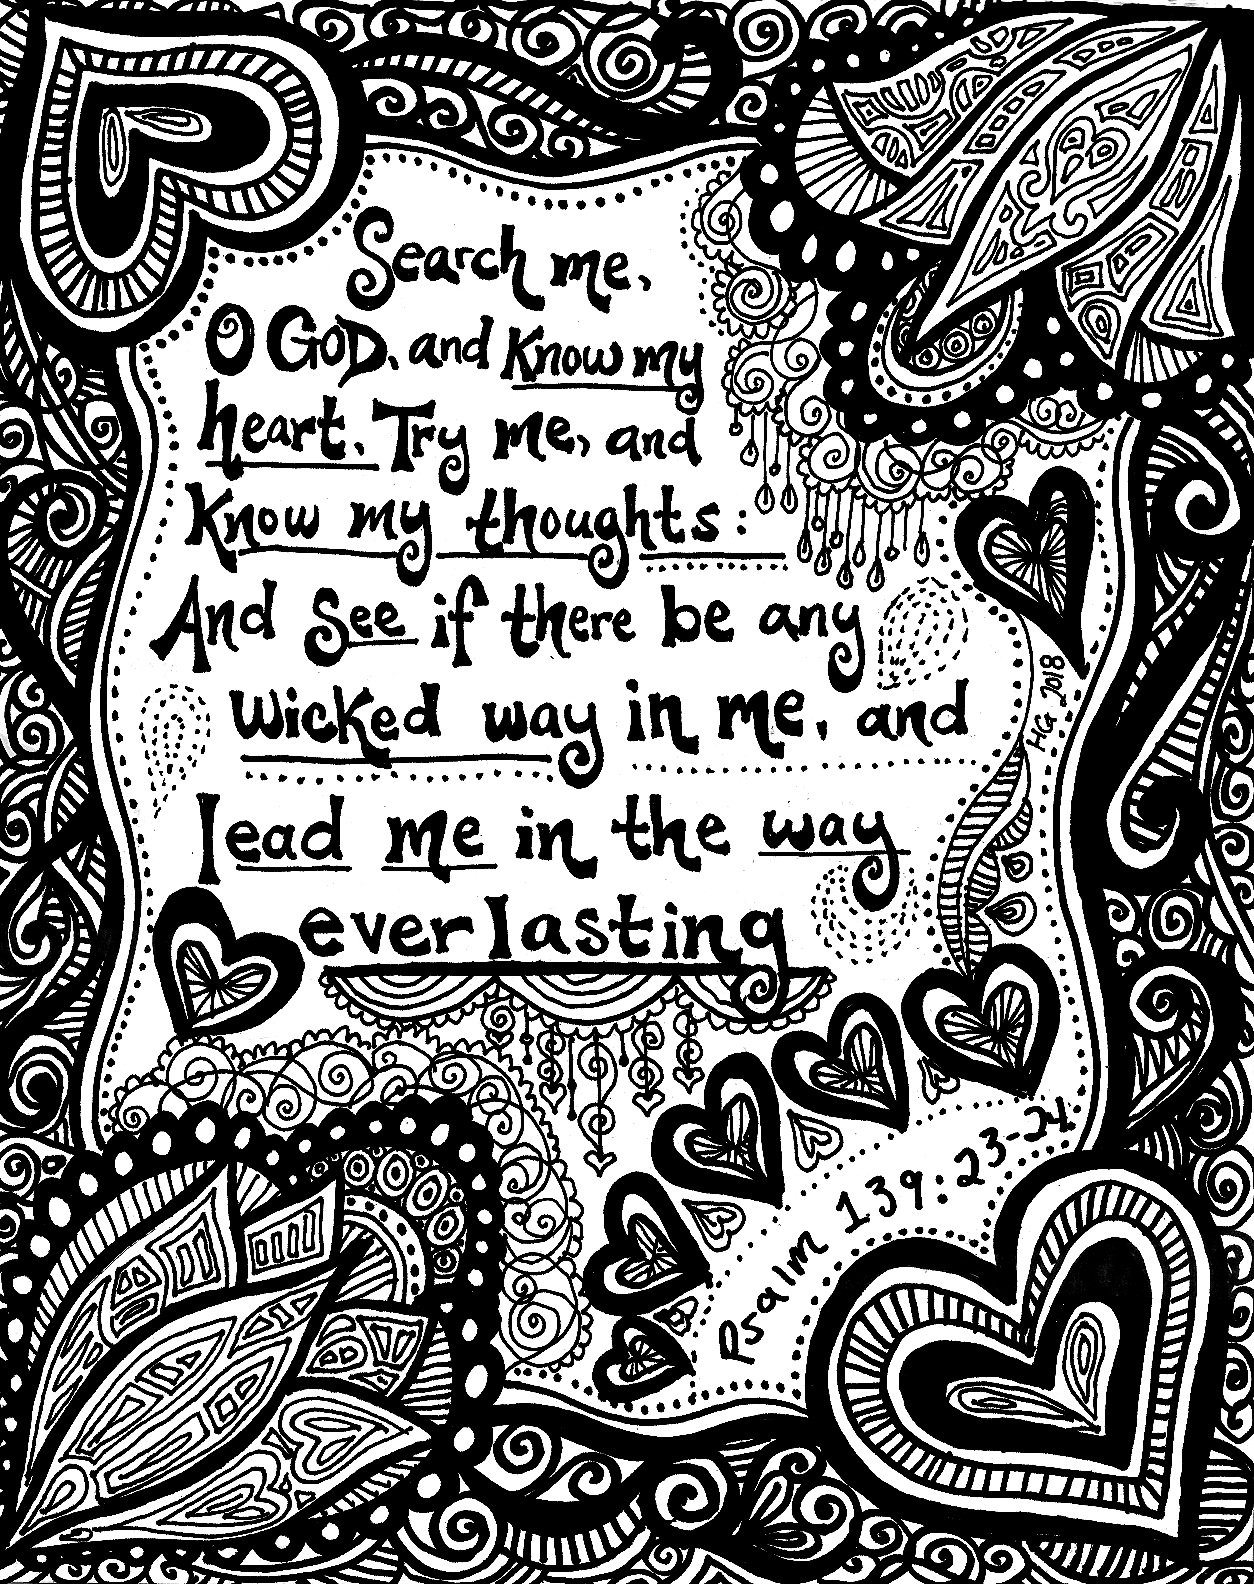 Search me,
O GOD, and Know my
heart. Try me, and
Know my thoughts:
And See if there be any
wicked way in me, and
lead me in the way
everlasting
HG 2018
Psalm 139:23-24